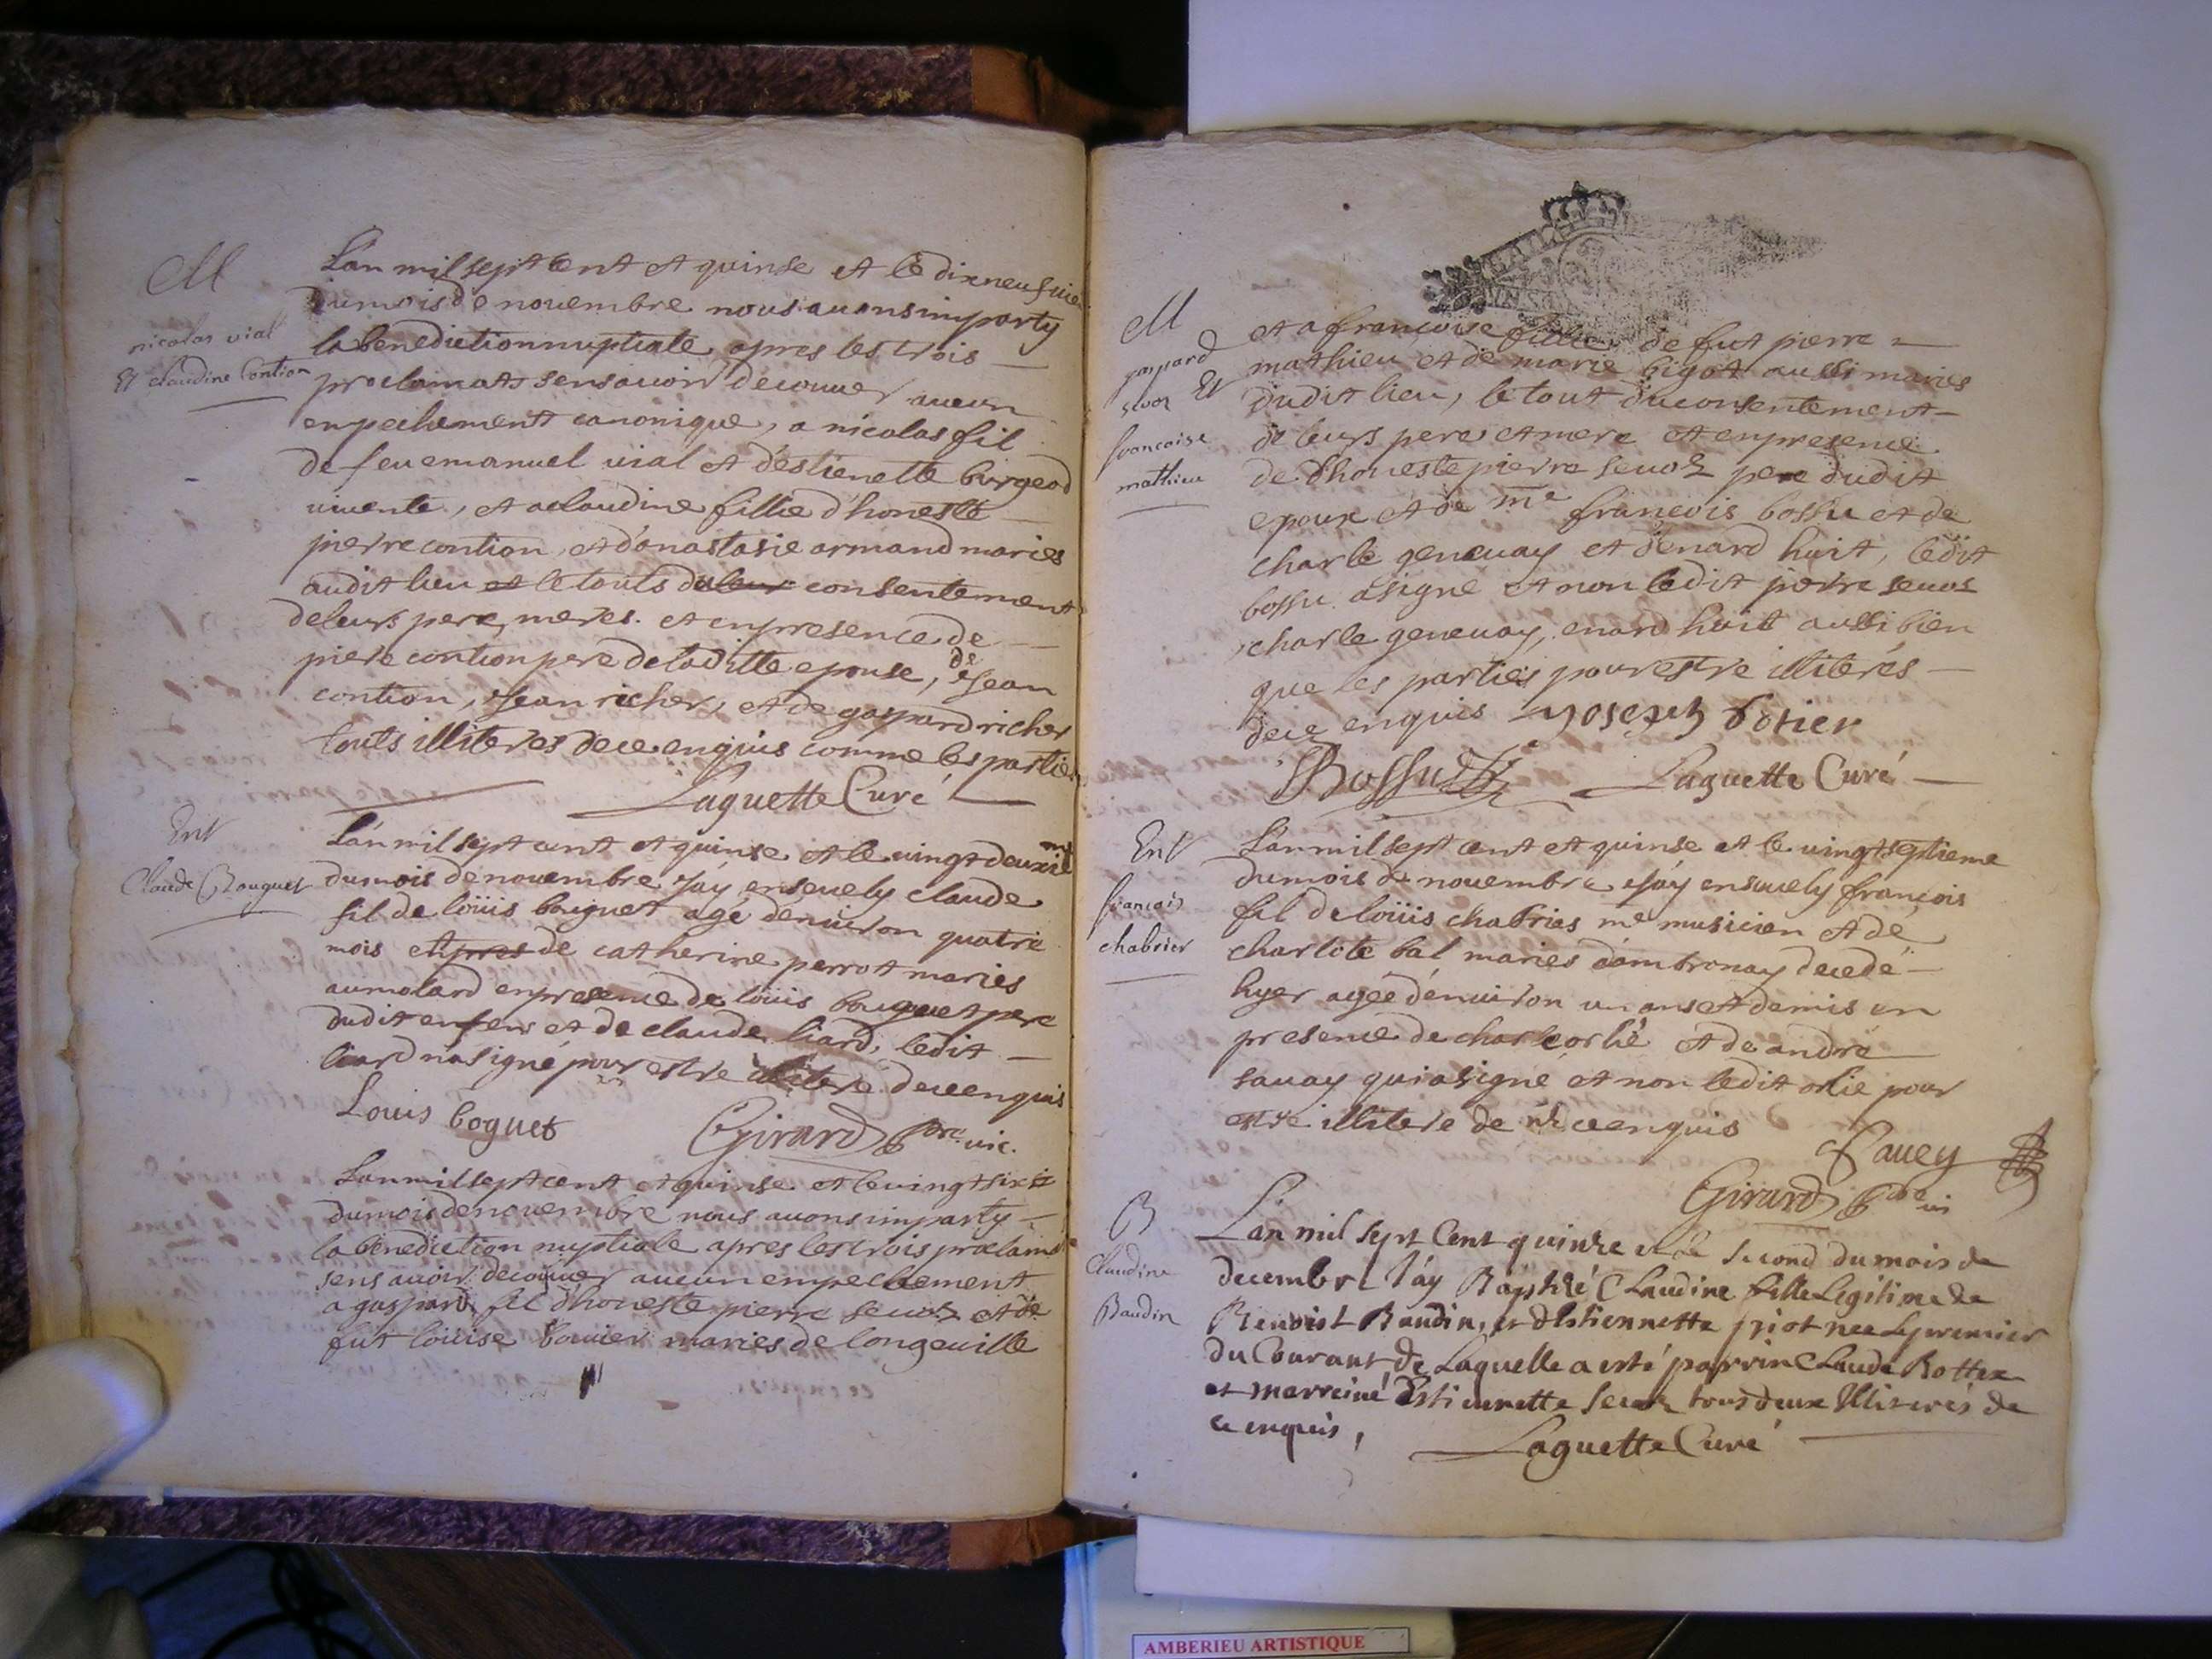 M
nicolas vial
Et claudine Contion
L'an mil sept cent et quinse et le dixneufuie
du mois de novembre nous auons imparty
la benediction nuptiale apres les trois
proclamats sens auoir decouuer aucun
enpechement canonique, a nicolas fil
de feu emanuel vial et d'estienette birgeod
viuente, et a claudine fillie d'honeste
pierre contion, et d'anastasie armand maries
audit lieu et le touts du leur consentement
de leurs pere, meres. et en presence de
piere contion pere de la ditte epouse, de Jean
contion, Jean richer, et de gaspard richer
touts illiteres de ce enquis comme les parties
Laguette Curé
Ent
Claude Bouguet
L'an mil sept cent et quinse et le uingt deuxie me
du mois de nouembre J'ay enseuely claude
fil de loüis bouguet agé d'enuiron quatre
mois et pres de catherine perrot maries
au molard en presence de loüis bouguet pere
dudit enfens et de claude liard, ledit
liard n'a signé pour estre illitere de ce enquis
Louis boguet
Girard pbre uic.
L'an mil sept cent et quinse et le uingt six
du mois de nouembre nous auons imparty
la benediction nuptiale apres les trois proclama
sens auoir decouuer aucun empechement
a gaspard fil d'honeste pierre seuoz et de
fut loüise bouuier maries de longeuille
M
gaspard
seuoz Et
francoise
mathieu
et a francoise fillie de fut pierre
mathieu et de marie bigot aussi maries
dudit lieu, le tout du consentement
de leurs peres et mere et en presence
de d'honeste pierre seuoz pere dudit
epoux et de me francois bossu et de
charle geneuay et d'enard huit, ledit
bossu a signé et non ledit pierre seuos
charle geneuay, enard huit aussi bien
que les parties pour estre illiterés
de ce enquis Joseph
Bossu Laguette Curé
Ent
francois
chabrier
L'an mil sept cent et quinse et le uingt septieme
du mois de nouembre J'ay enseuely françois
fil de loüis chabrier me musicien et de
charlote bal maries d'ambronay decedé
hyer agée d'enuiron un ans et demis en
presence de charle orlié et de andré
sauay qui a signé et non ledit orlie pour
estre illitere de ce enquis
Sauey
Girard pbre ui
B
Claudine
Baudin
L'an mil sept Cent quinze et le second du mois de
decembre J'ay Baptizé Claudine fille Legitime de
Benoist Baudin, et d'Estiennette priot nee le premier
du Courant de Laquelle a esté parrin Claude Bottex
et marreine Estiennette seuoz tous deux Illiterés de
ce enquis,
Laguette Curé
AMBERIEU ARTISTIQUE